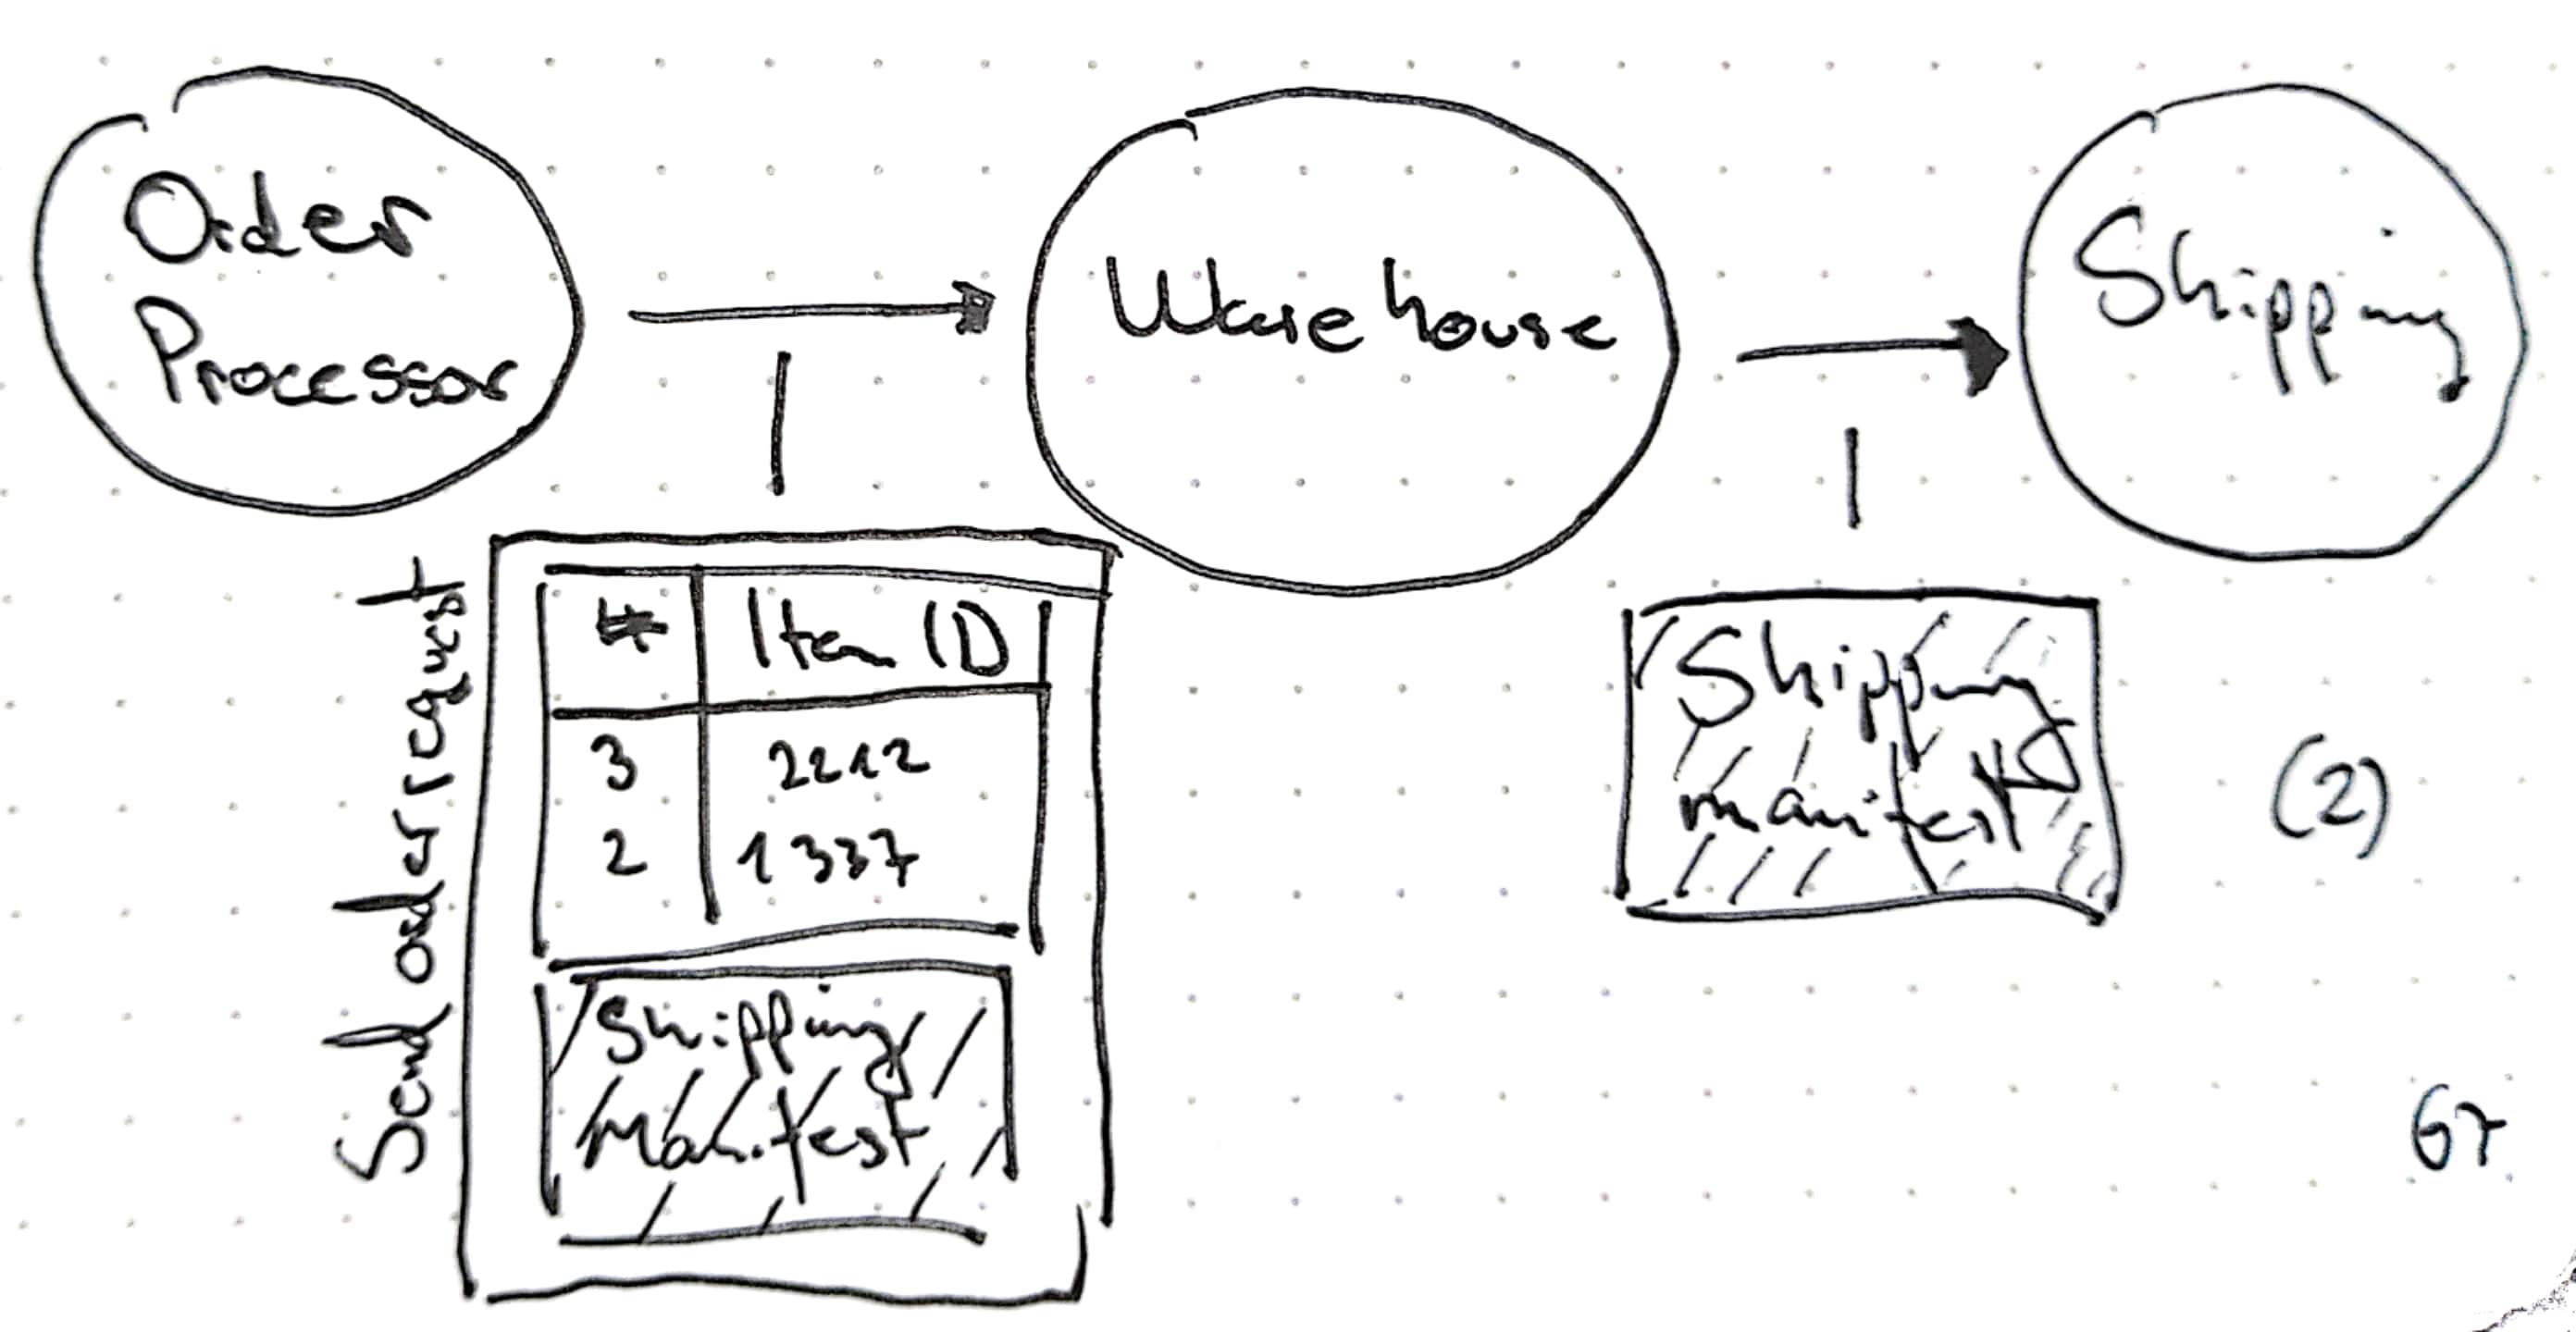 Order
Processor
Warehouse
Shipping
Send order request
# Item ID
3 2212
2 1337
Shipping
Manifest
Shipping
manifest
(2)
67